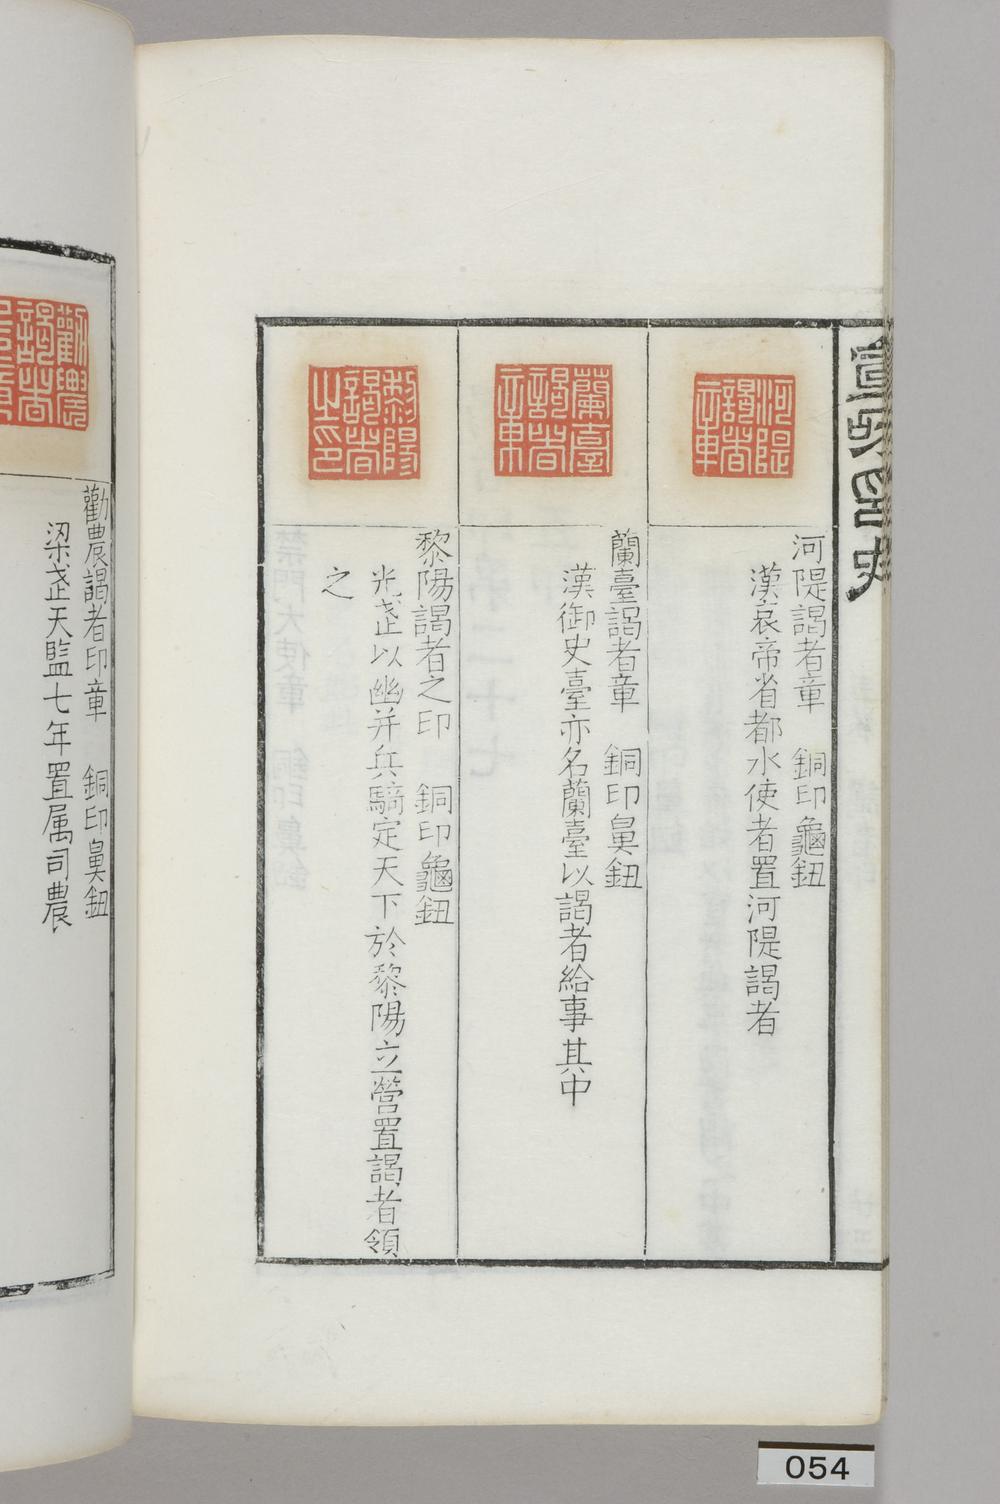 河隄謁者章
河隄謁者章　銅印龜鈕
漢哀帝省都水使者置河隄謁者
蘭臺謁者章
蘭臺謁者章　銅印鼻鈕
漢御史臺亦名蘭臺以謁者給事其中
黎陽謁者之印
黎陽謁者之印　銅印龜鈕
光武以幽并兵騎定天下於黎陽立營置謁者領
之
勸農謁者印章
勸農謁者印章　銅印鼻鈕
梁武天監七年置属司農
054